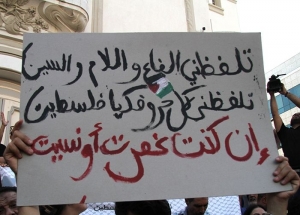 تلفظني الفاء و اللام والسين
تلفظني كل حروفك يا فلسطين
إن كنت غفرت أو نسيت